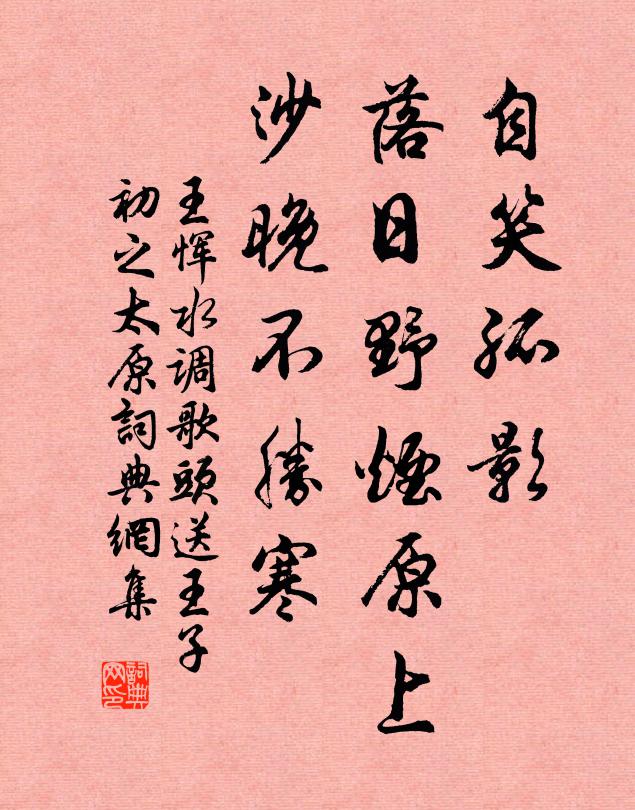 自笑孤影
落日野煙原上
沙晚不勝寒
王恽水调歌頭送王子
初之太原詞典網集
詞典网印